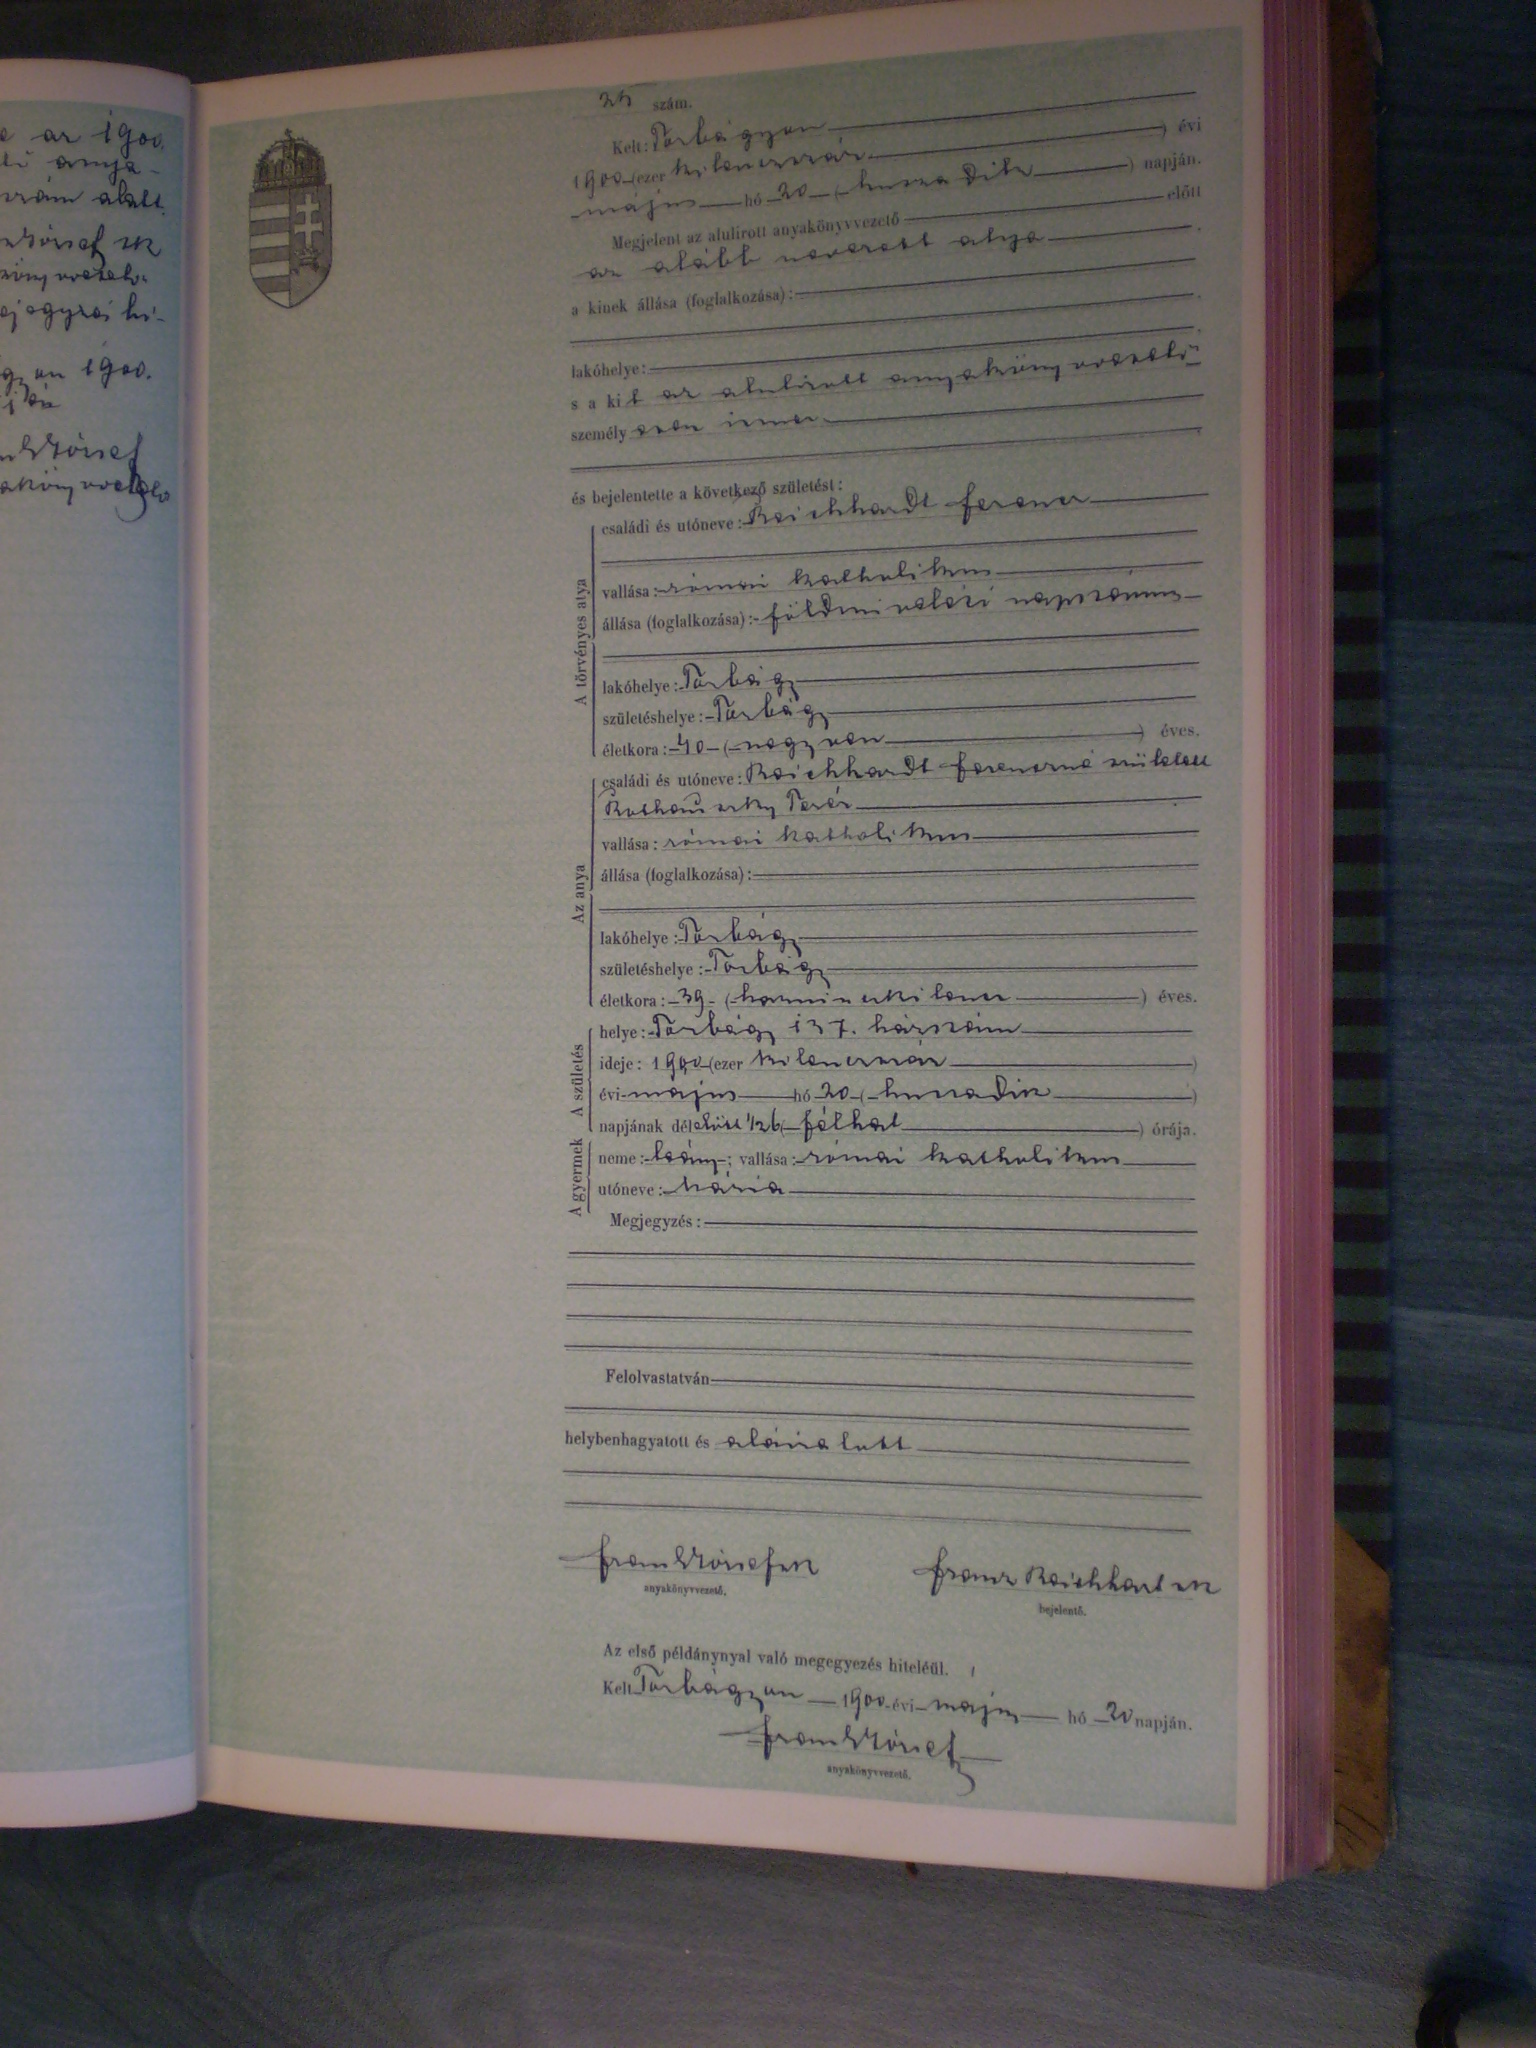 e az 1900.
anya-
szám alatt.
József sk
könyvvezető
1900.
József
anyakönyvvezető
25 szám.
Kelt: Torbágyon
1900 (ezer kilenczszáz ) évi
május hó 20 (huszadik ) napján.
Megjelent az alulirott anyakönyvvezető előtt
az alább nevezett atya
a kinek állása (foglalkozása):
lakóhelye:
s a kit az alulirott anyakönyvvezető
személyesen ismer
és bejelentette a következő születést:
A törvényes atya
családi és utóneve: Reichhardt Ferencz
vallása: római katholikus
állása (foglalkozása): földmivelési napszámos
lakóhelye: Torbágy
születéshelye: Torbágy
életkora: 40 (negyven ) éves.
Az anya
családi és utóneve: Reichhardt Ferenczné született
Teréz
vallása: római katholikus
állása (foglalkozása):
lakóhelye: Torbágy
születéshelye: Torbágy
életkora: 39 (harminczkilencz ) éves.
A születés
helye: Torbágy 137. házszám
ideje: 1900 (ezer kilenczszáz )
évi május hó 20 (huszadik )
napjának délelőtt 1/26 (félhat ) órája.
A gyermek
neme: leány; vallása: római katholikus
utóneve: Mária
Megjegyzés:
Felolvastatván
helybenhagyatott és aláiratott
József sk
Franz Reichhart sk
anyakönyvvezető.
bejelentő.
Az első példánynyal való megegyezés hiteléül.
Kelt Torbágyon 1900 évi május hó 20 napján.
József
anyakönyvvezető.